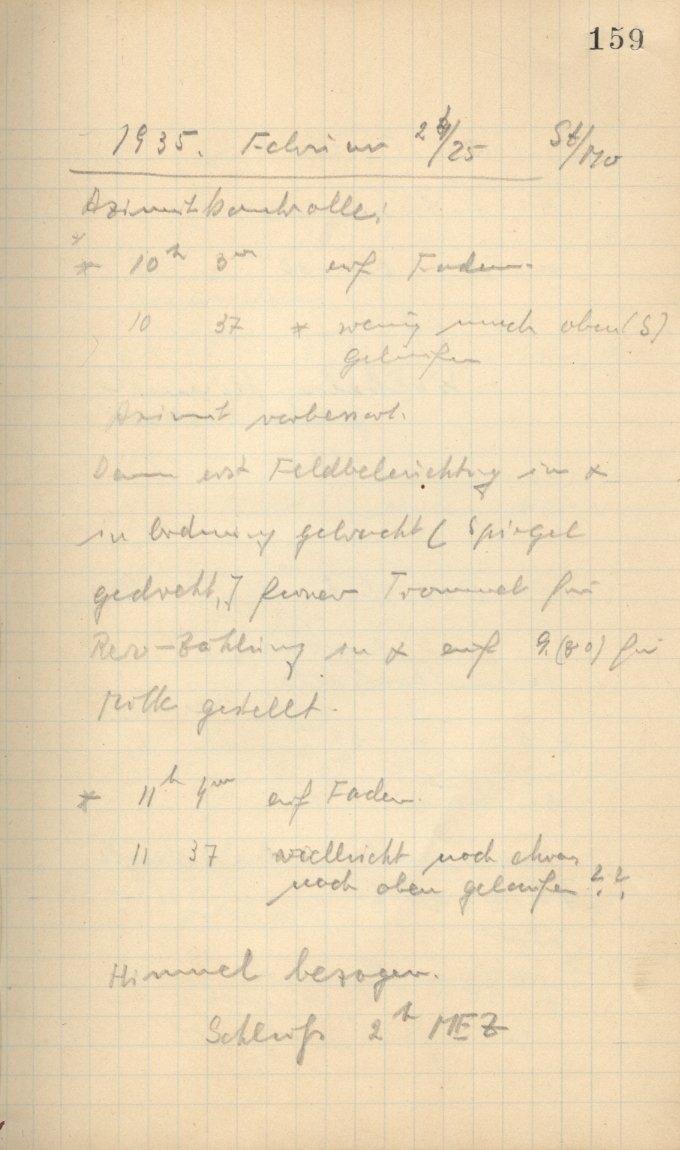 159
1935. Februar 24/25 St/Mo
Azimutkontrolle:
* 10h 3m auf Faden.
10 37 * wenig nach oben (S)
gelaufen
Azimut verbessert.
Dann erst Feldbeleuchtung in α
in Ordnung gebracht (Spiegel
gedreht,] ferner Trommel für
Rev-Zählung in α auf 9.(80) für
Mitte gestellt.
* 11h 4m auf Faden.
11 37 vielleicht noch etwas
nach oben gelaufen ??
Himmel bezogen.
Schluß 2h MEZ